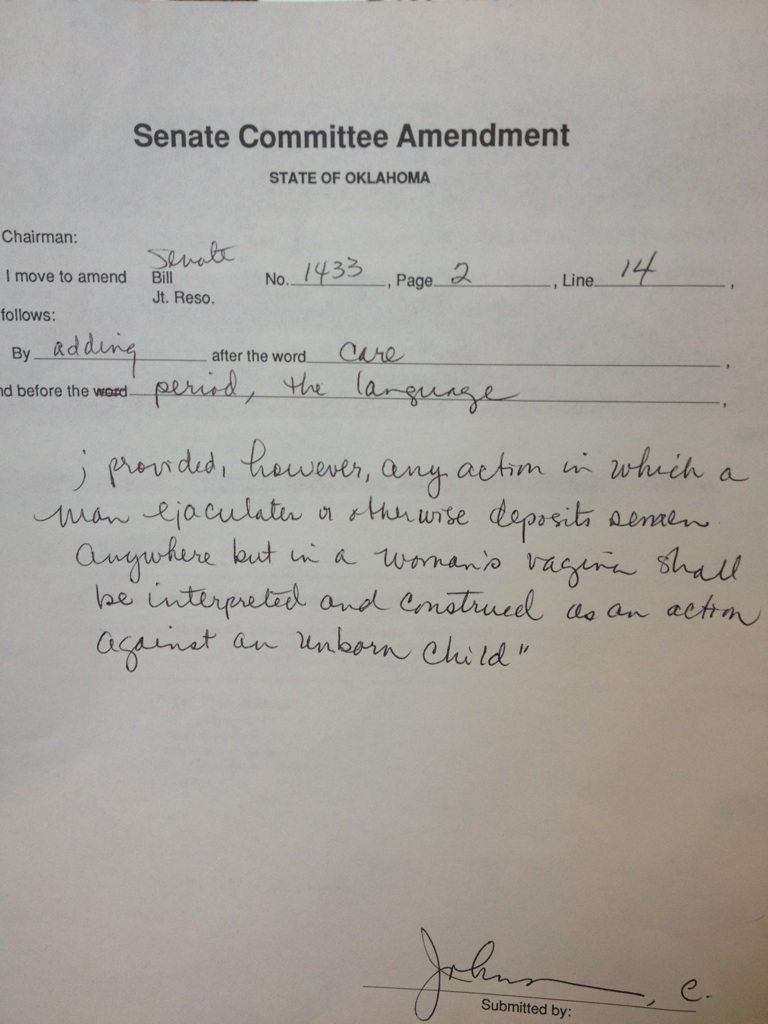 Senate Committee Amendment
STATE OF OKLAHOMA
Chairman:
Senate
I move to amend Bill No. 1433, Page 2, Line 14,
Jt. Reso.
follows:
By adding after the word care,
nd before the word period, the language,
; provided, however, any action in which a
man ejaculates or otherwise deposits semen
anywhere but in a woman's vagina shall
be interpreted and construed as an action
against an unborn child"
Johnson, C.
Submitted by: